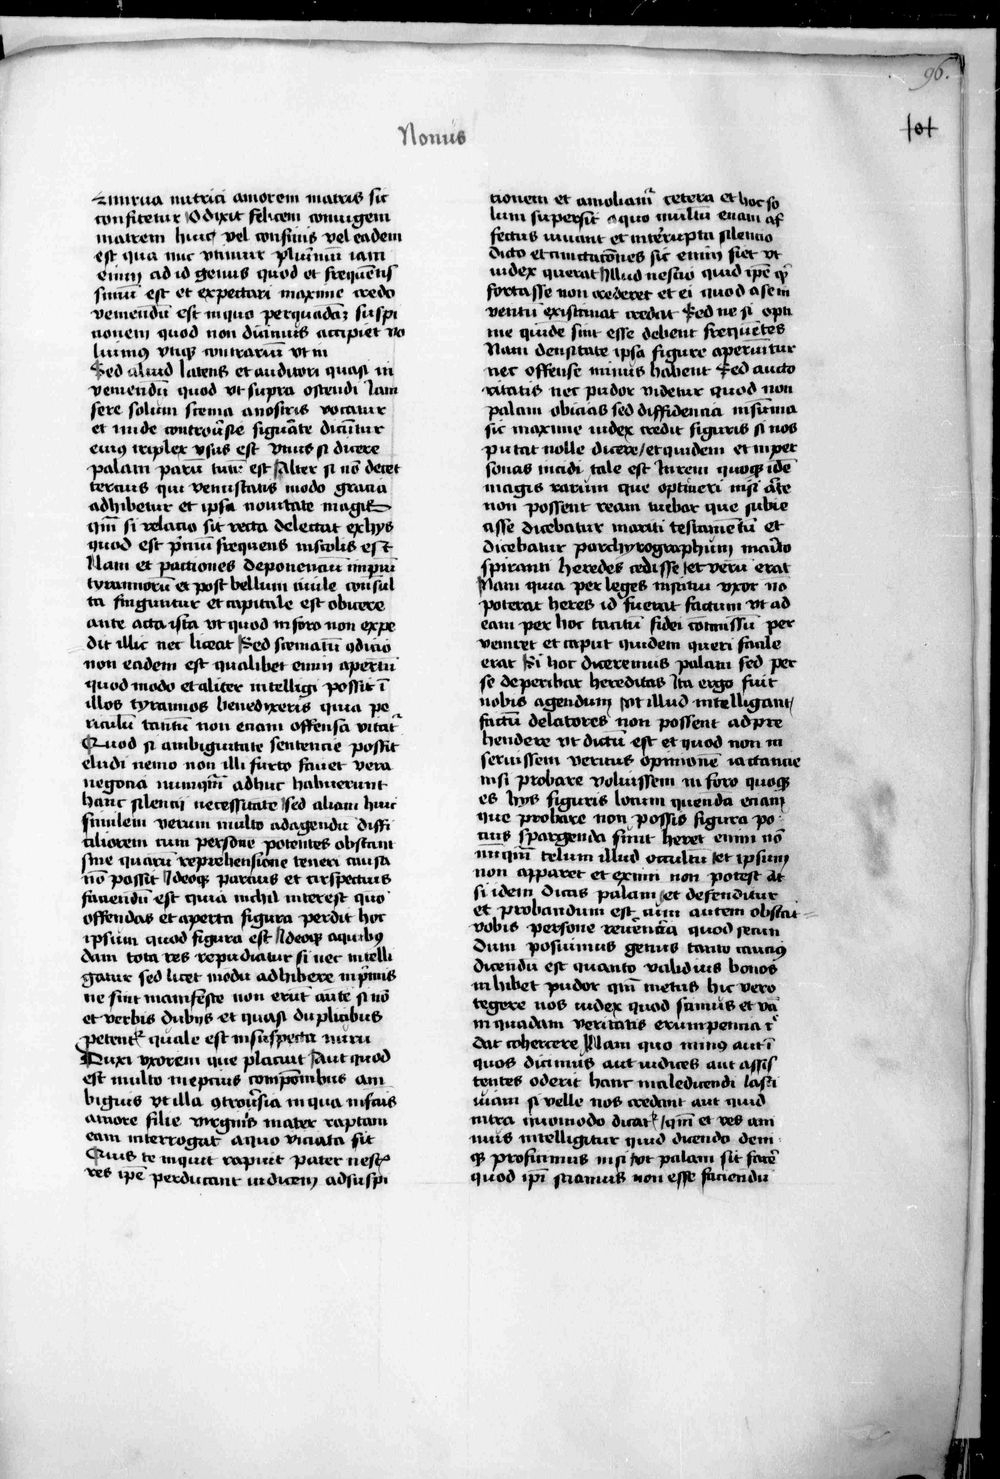 96.
Nonus
Zmirna nutrici amorem matris sic
confitetur O dixit felicem coniugem
matrem huic vel confinis vel eadem
est qua nunc vtimur plurimū iam
enim ad id genus quod et frequens
simū est et expectari maxime credo
veniendū est in quo per quadaʒ suspi
tionem quod non dicimus accipi et vo
lumus vtiqʒ contrariū vt in
Sed aliud latens et auditori quasi in
veniendū quod vt supra ostendi Iam
fere solum scema a nostris vocatur
et inde controūsie figurāte dicūtur
eius triplex vsus est vnus si dicere
palam parū tutū est Alter si nō decet
tercius qui venustatis modo gracia
adhibetur et ipsa nouitate magis
qm̄ si relatio sit recta delectat ex hys
quod est prīmū frequens in scolis est
Nam et pactiones deponentiū imperiū
tyrannorū et post bellum ciuile consul
ta finguntur et capitale est obicere
ante acta ista vt quod in foro non expe
dit illic nec liceat Sed scematū ꝯdicio
non eadem est qualibet enim apertū
quod modo et aliter intelligi possit ī
illos tyrannos benedixeris quia pe
riculū tantum non etiam offensa vitatᷣ
Quod si ambiguitate sentencie possit
eludi nemo non illi furto fauet vera
negocia nunqm̄ adhuc habuerunt
hanc silencij necessitate sed aliam huic
similem verum multo ad agendū diffi
ciliorem cum persone potentes obstant
sine quarū reprehensione teneri causa
nō possit Ideoqʒ parcius et cirspectius
faciendū est quia nichil interest quō
offendas et aperta figura perdit hoc
ipsum quod figura est Ideoqʒ a quibꝰ
dam tota res repudiatur si nec intelli
gatur sed licet modū adhibere in prīmis
ne sint manifeste non erūt aūte si nō
et verbis dubijs et quasi duplicibus
petentᷣ quale est in suspecta nuru
Duxi vxorem que placuit Aut quod
est multo inepcius compōnibus am
biguis vt illa ꝯtrouersia in qua infamis
amore filie virginis mater raptam
eam interrogat a quo viciata sit
Quis te inquit rapuit pater nesc̄
res ipē perducant iudicem ad suspi
tionem et amoliamᷣ cetera et hoc so
lum supersit a quo multū etiam af
fectus iuuant et interrupta silencio
dicto et cunctatōnes sic enim fiet vt
iudex querat illud nescio quid ipē qᷣ
fortasse non crederet et ei quod a se in
ventū existimat credat Sed ne si opti
me quidē sint esse debent frequētes
Nam densitate ipsa figure aperiuntur
nec offense minus habent Sed aucto
ritatis nec pudor videtur quod non
palam obicias sed diffidencia in sūma
sic maxime iudex credit figuris si nos
putat nolle dicere et quidem et in per
sonas incidi tale est In rem quoqʒ idē
magis rarium que optineri nisi arte
non possent ream tuebar que subie
cisse dicebatur mariti testamētū et
dicebatur parchyrographum marito
spiranti heredes cedisse et verū erat
Nam quia per leges institui vxor nō
poterat heres id fuerat factum vt ad
eam per hoc tacitū fidei comissū per
veniret et caput quidem queri facile
erat Si hoc diceremus palam sed per
se deperibat hereditas Ita ergo fuit
nobis agendum vt illud intelligant
factū delatores non possent adpre
hendere vt dictū est et quod non in
seruissem veritus opinionē iactancie
nisi probare voluissem in foro quoqʒ
es hys figuris locum quendā etiam
que probare non possis figura po
tius spargenda sunt heret enim nō
nūqm̄ telum illud occultū et ipsum
non apparet et eximi non potest at
si idem dicas palam et defenditur
et probandum est cum autem obstat
vobis persone reuerēcia quod secun
dum posuimus genus tanto caucius
dicendū est quanto validius bonos
inhibet pudor qm̄ metus hic vero
tegere nos iudex quod scimus et vā
in quadam veritatis erumpencia cᷣ
dat cohercere Nam quo minus aut ī
quos dicimus aut iudices aut assis
tentes oderit hanc maledicendi lasci
viam si velle nos credant aut quid
intra quomodo dicatᷣ qm̄ et res ani
mus intelligitur quid dicendo deni
qʒ proficimus nisi vt palam sit facē
quod ipī sciamus non esse faciendū